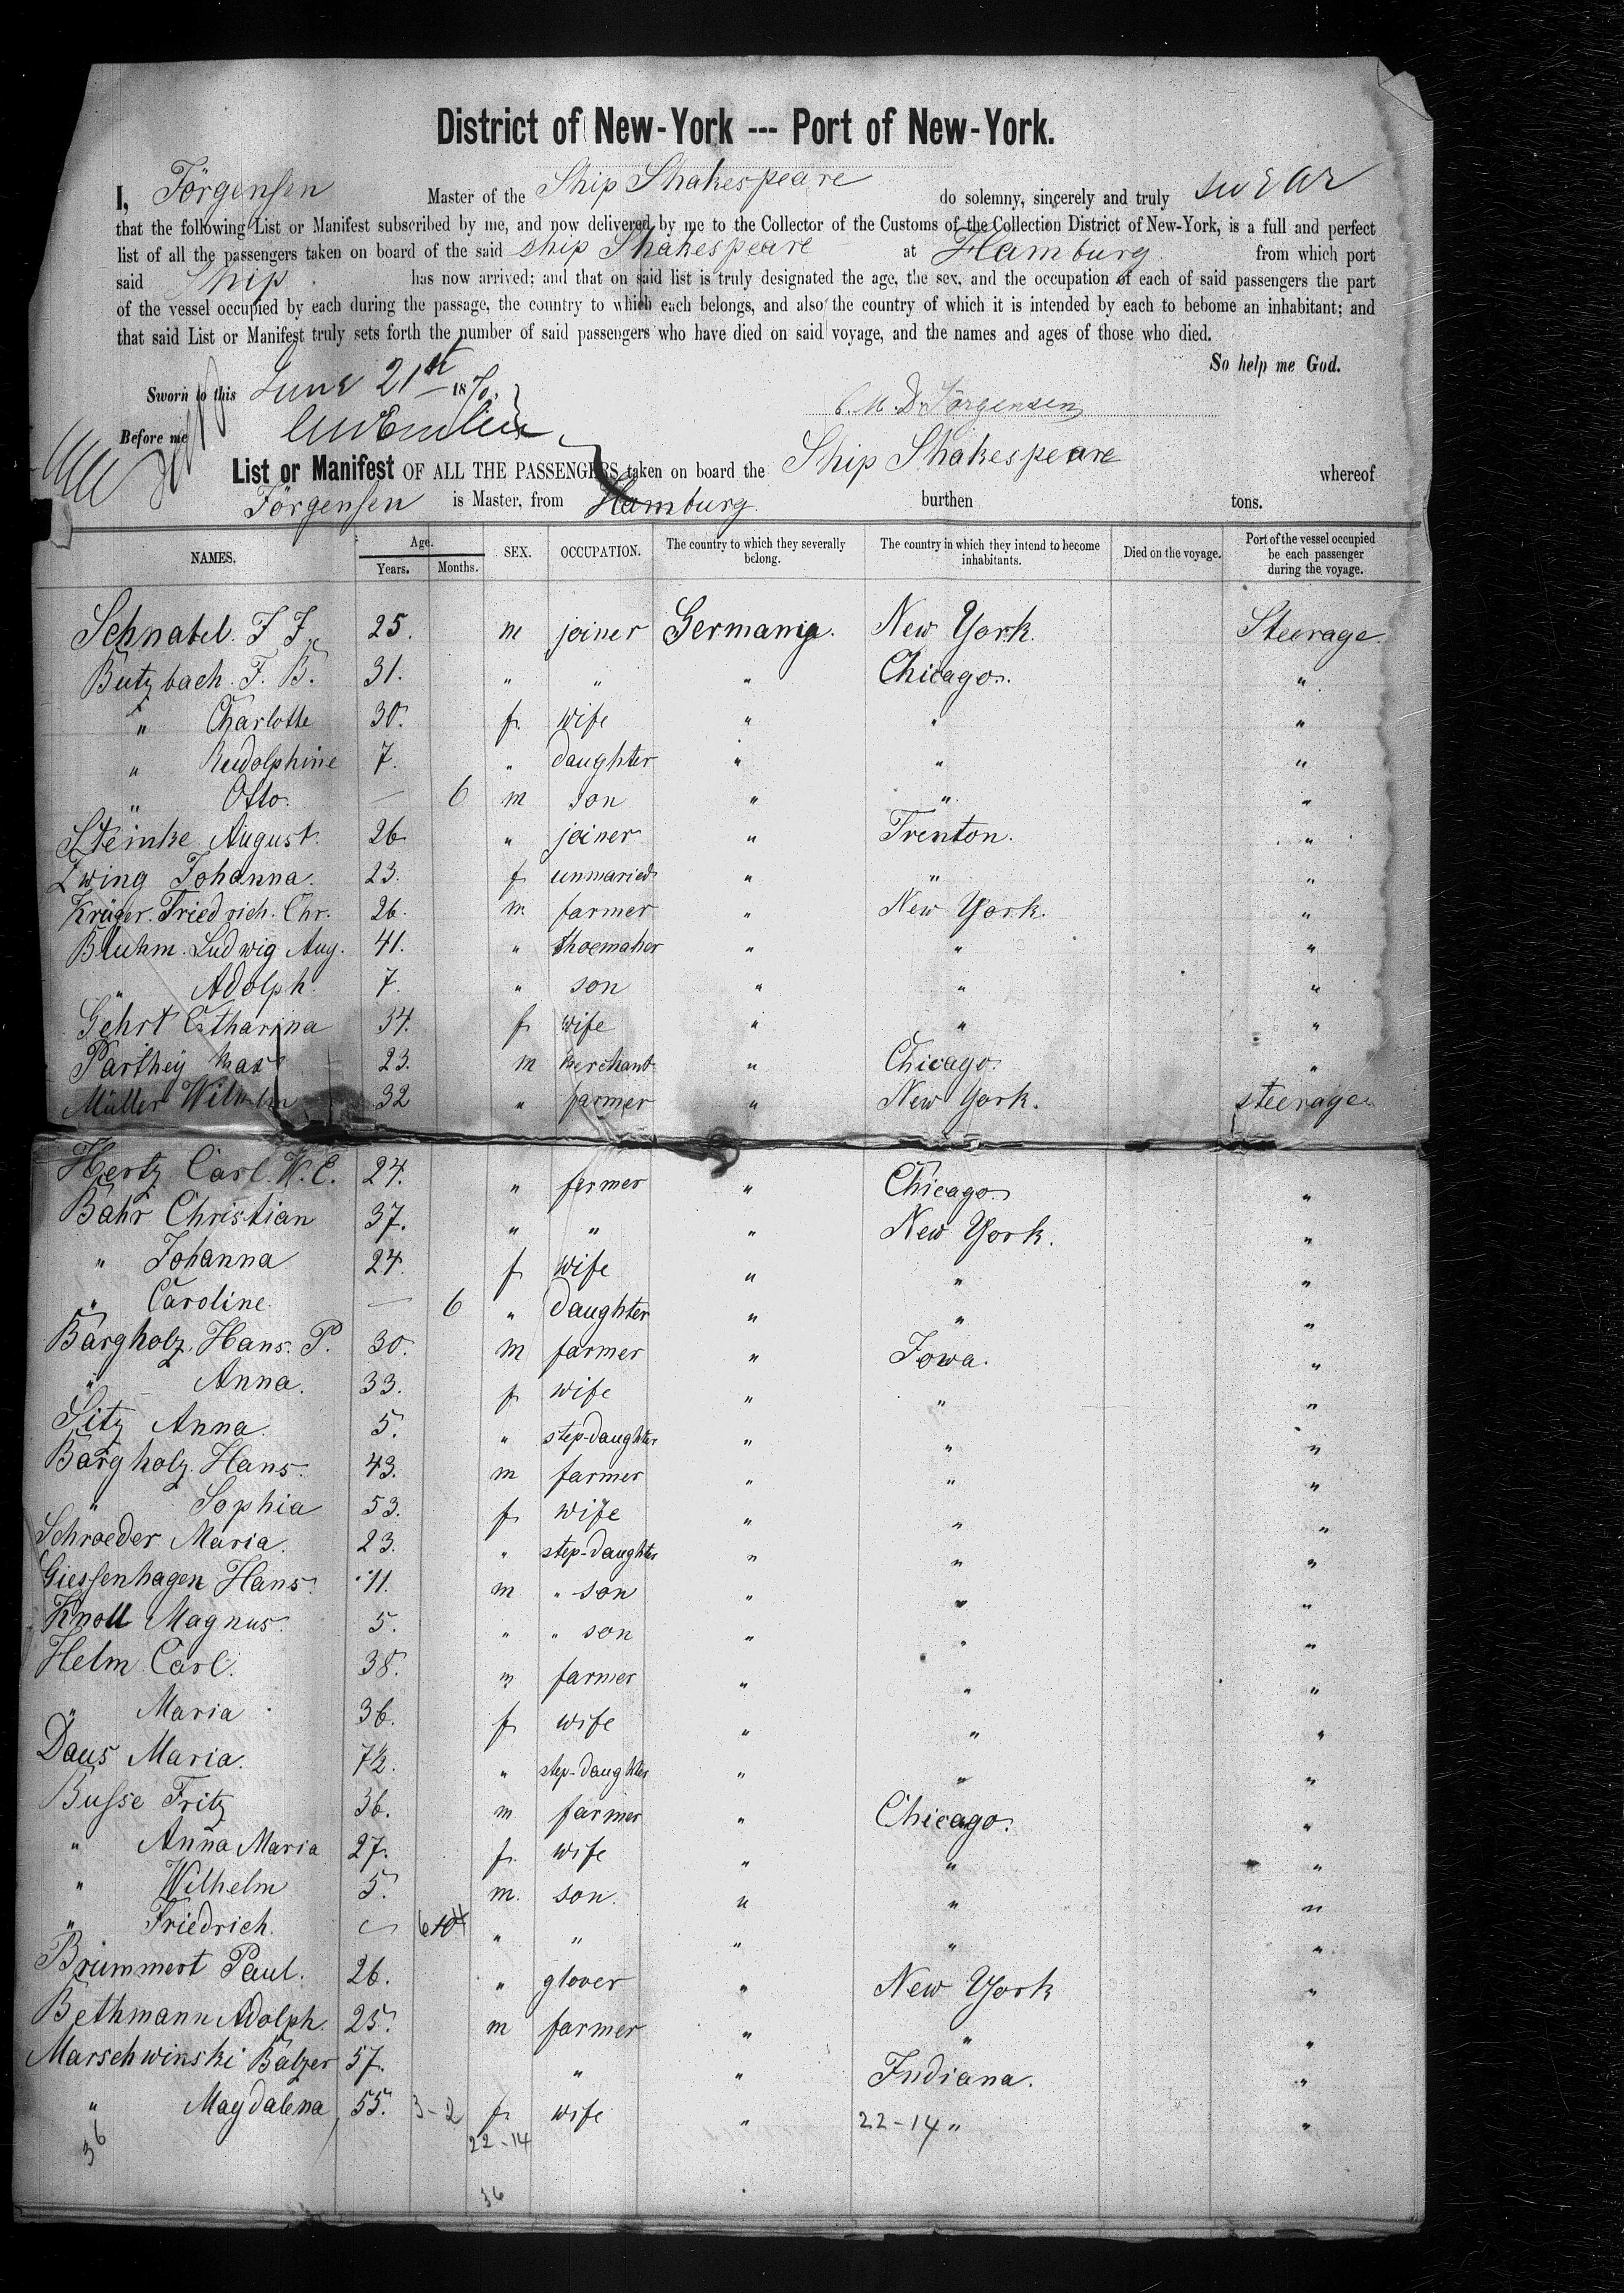 District of New-York --- Port of New-York.
I, Jörgensen Master of the Ship Shakespeare do solemny, sincerely and truly swear
that the following List or Manifest subscribed by me, and now delivered by me to the Collector of the Customs of the Collection District of New-York, is a full and perfect
list of all the passengers taken on board of the said ship Shakespeare at Hamburg. from which port
said Ship has now arrived; and that on said list is truly designated the age, the sex, and the occupation of each of said passengers the part
of the vessel occupied by each during the passage, the country to which each belongs, and also the country of which it is intended by each to bebome an inhabitant; and
that said List or Manifest truly sets forth the number of said passengers who have died on said voyage, and the names and ages of those who died.
So help me God.
Sworn to this June 21st 1870.
C. M. D. Jörgensen
Before me
List or Manifest OF ALL THE PASSENGERS taken on board the Ship Shakespeare whereof
Jörgensen is Master, from Hamburg. burthen tons.
NAMES. Age. Years. Months. SEX. OCCUPATION. The country to which they severally belong. The country in which they intend to become inhabitants. Died on the voyage. Port of the vessel occupied be each passenger during the voyage.
Schnabel. F F. 25. m joiner Germania. New York. Steerage.
Butzbach. F. B. 31. " " " Chicago. "
" Charlotte 30. f. wife " " "
" Rudolphine 7. " daughter " " "
" Otto. — 6 m son " " "
Steinke August. 26 " joiner " Trenton. "
Zwing Johanna. 23. f unmaried " " "
Krüger. Friedrich. Chr. 26. m farmer " New York. "
Bluhm. Ludwig Aug. 41. " shoemaker " " "
" Adolph. 7. " son " " "
Gehrt Catharina 34. f wife " " "
Parthey Max 23. m merchant " Chicago. "
Müller Wilhelm 32 " farmer " New York. steerage.
Hertz Carl. W. C. 24. " farmer " Chicago. "
Bahr Christian 37. " " " New York. "
" Johanna 24. f wife " " "
" Caroline. — 6 " daughter " " "
Bargholz. Hans. P. 30. m farmer " Iowa. "
" Anna. 33. f wife " " "
Sitz Anna. 5. " step-daughter " " "
Bargholz. Hans. 43. m farmer " " "
" Sophia 53. f wife " " "
Schroeder Maria. 23. " step-daughter " " "
Giessenhagen Hans. 11. m " son " " "
Knoll Magnus. 5. " " son " " "
Helm Carl. 38. m farmer " " "
" Maria 36. f wife " " "
Daus Maria. 7½. " step-daughter " " "
Busse Fritz 36. m farmer " Chicago. "
" Anna Maria 27. f. wife " " "
" Wilhelm 5. m. son. " " "
" Friedrich. — " " " " "
Brümmert Paul. 26. " glover " New York "
Bethmann Adolph. 25. m farmer " " "
Marschwinski Balzer 57. " " Indiana. "
" Magdalena 55. 3-2 f. wife " 22-14 " "
36 22-14
36